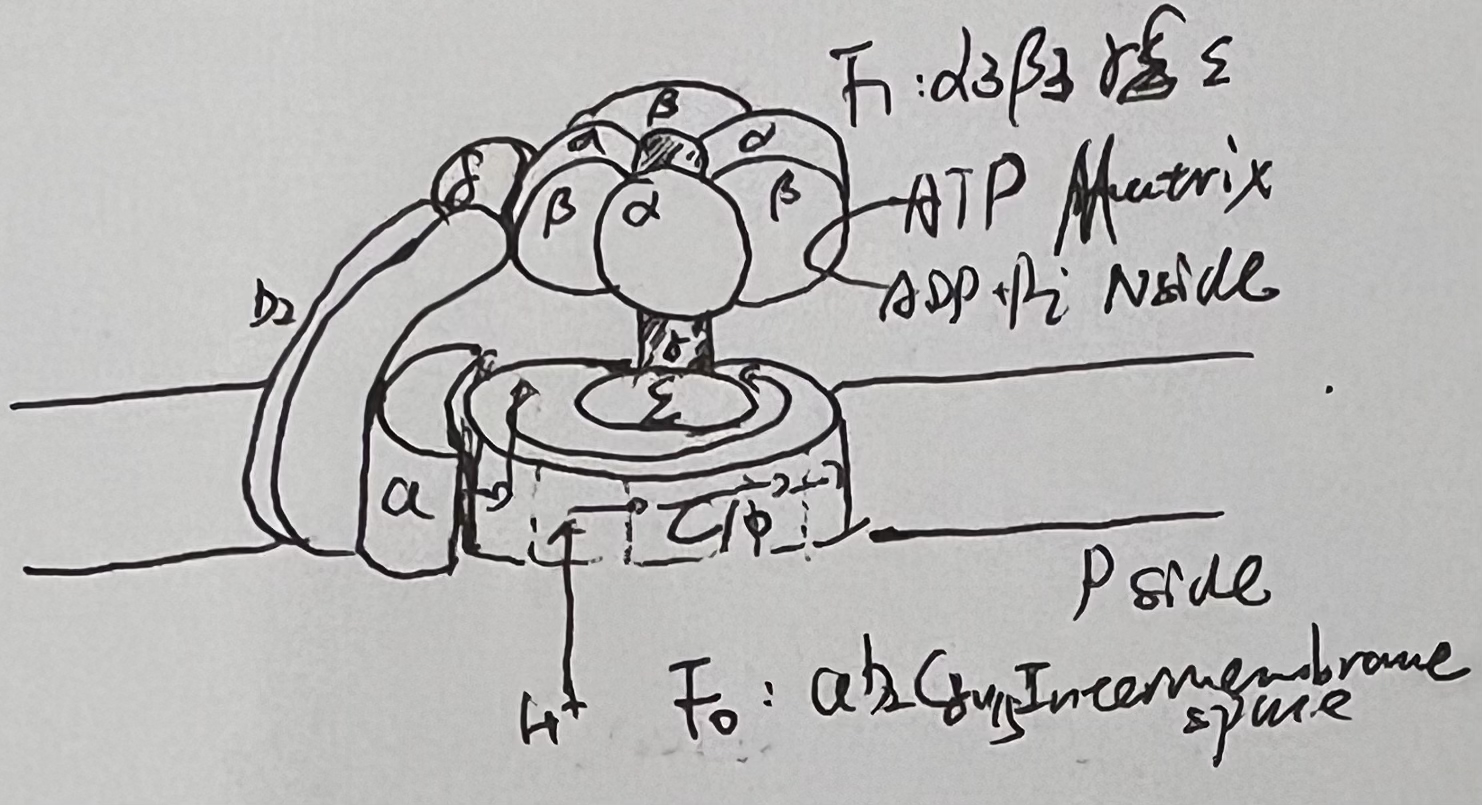 F1 : α3 β3 γ δ ε
β
α
α
δ
β
α
β
ATP Matrix
ADP + Pi N side
b2
γ
ε
a
C10
P side
H+
F0 : ab2 C8~15 Intermembrane
space